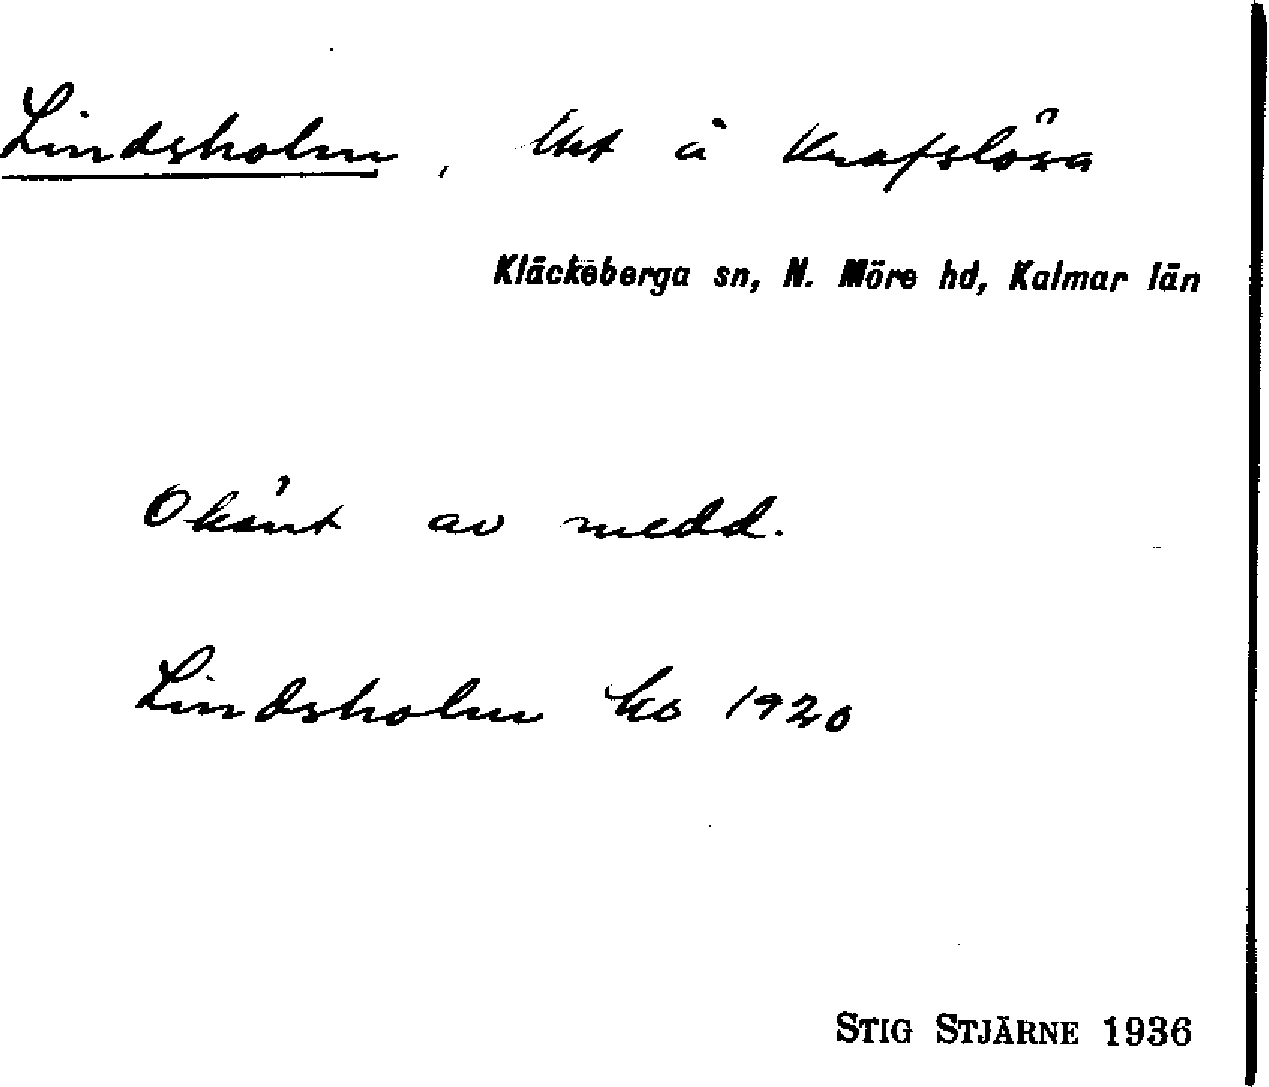 Lindsholm, lht å Krafslösa
Kläckeberga sn, N. Möre hd, Kalmar län
Okänt av medd.
Lindsholm 1920
STIG STJÄRNE 1936